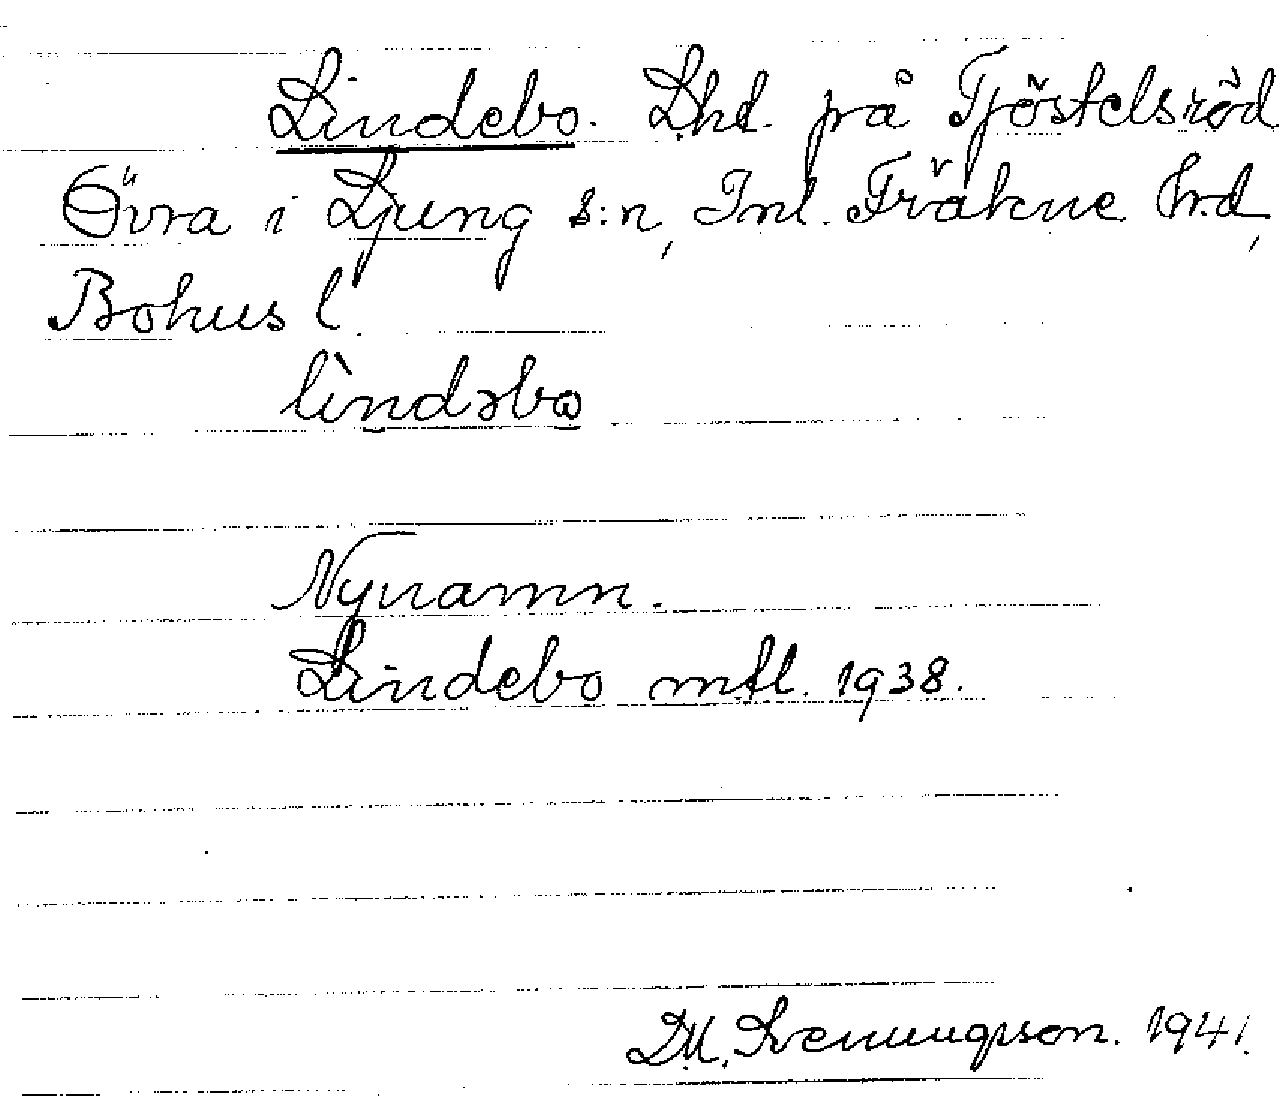 Lindebo. Lht. på Tjöstelsröd
Övra i Ljung s:n, Inl. Fräkne hrd,
Bohus l.
lìndəbω
Nynamn.
Lindebo mtl. 1938.
D.M. Svenungsson. 1941.